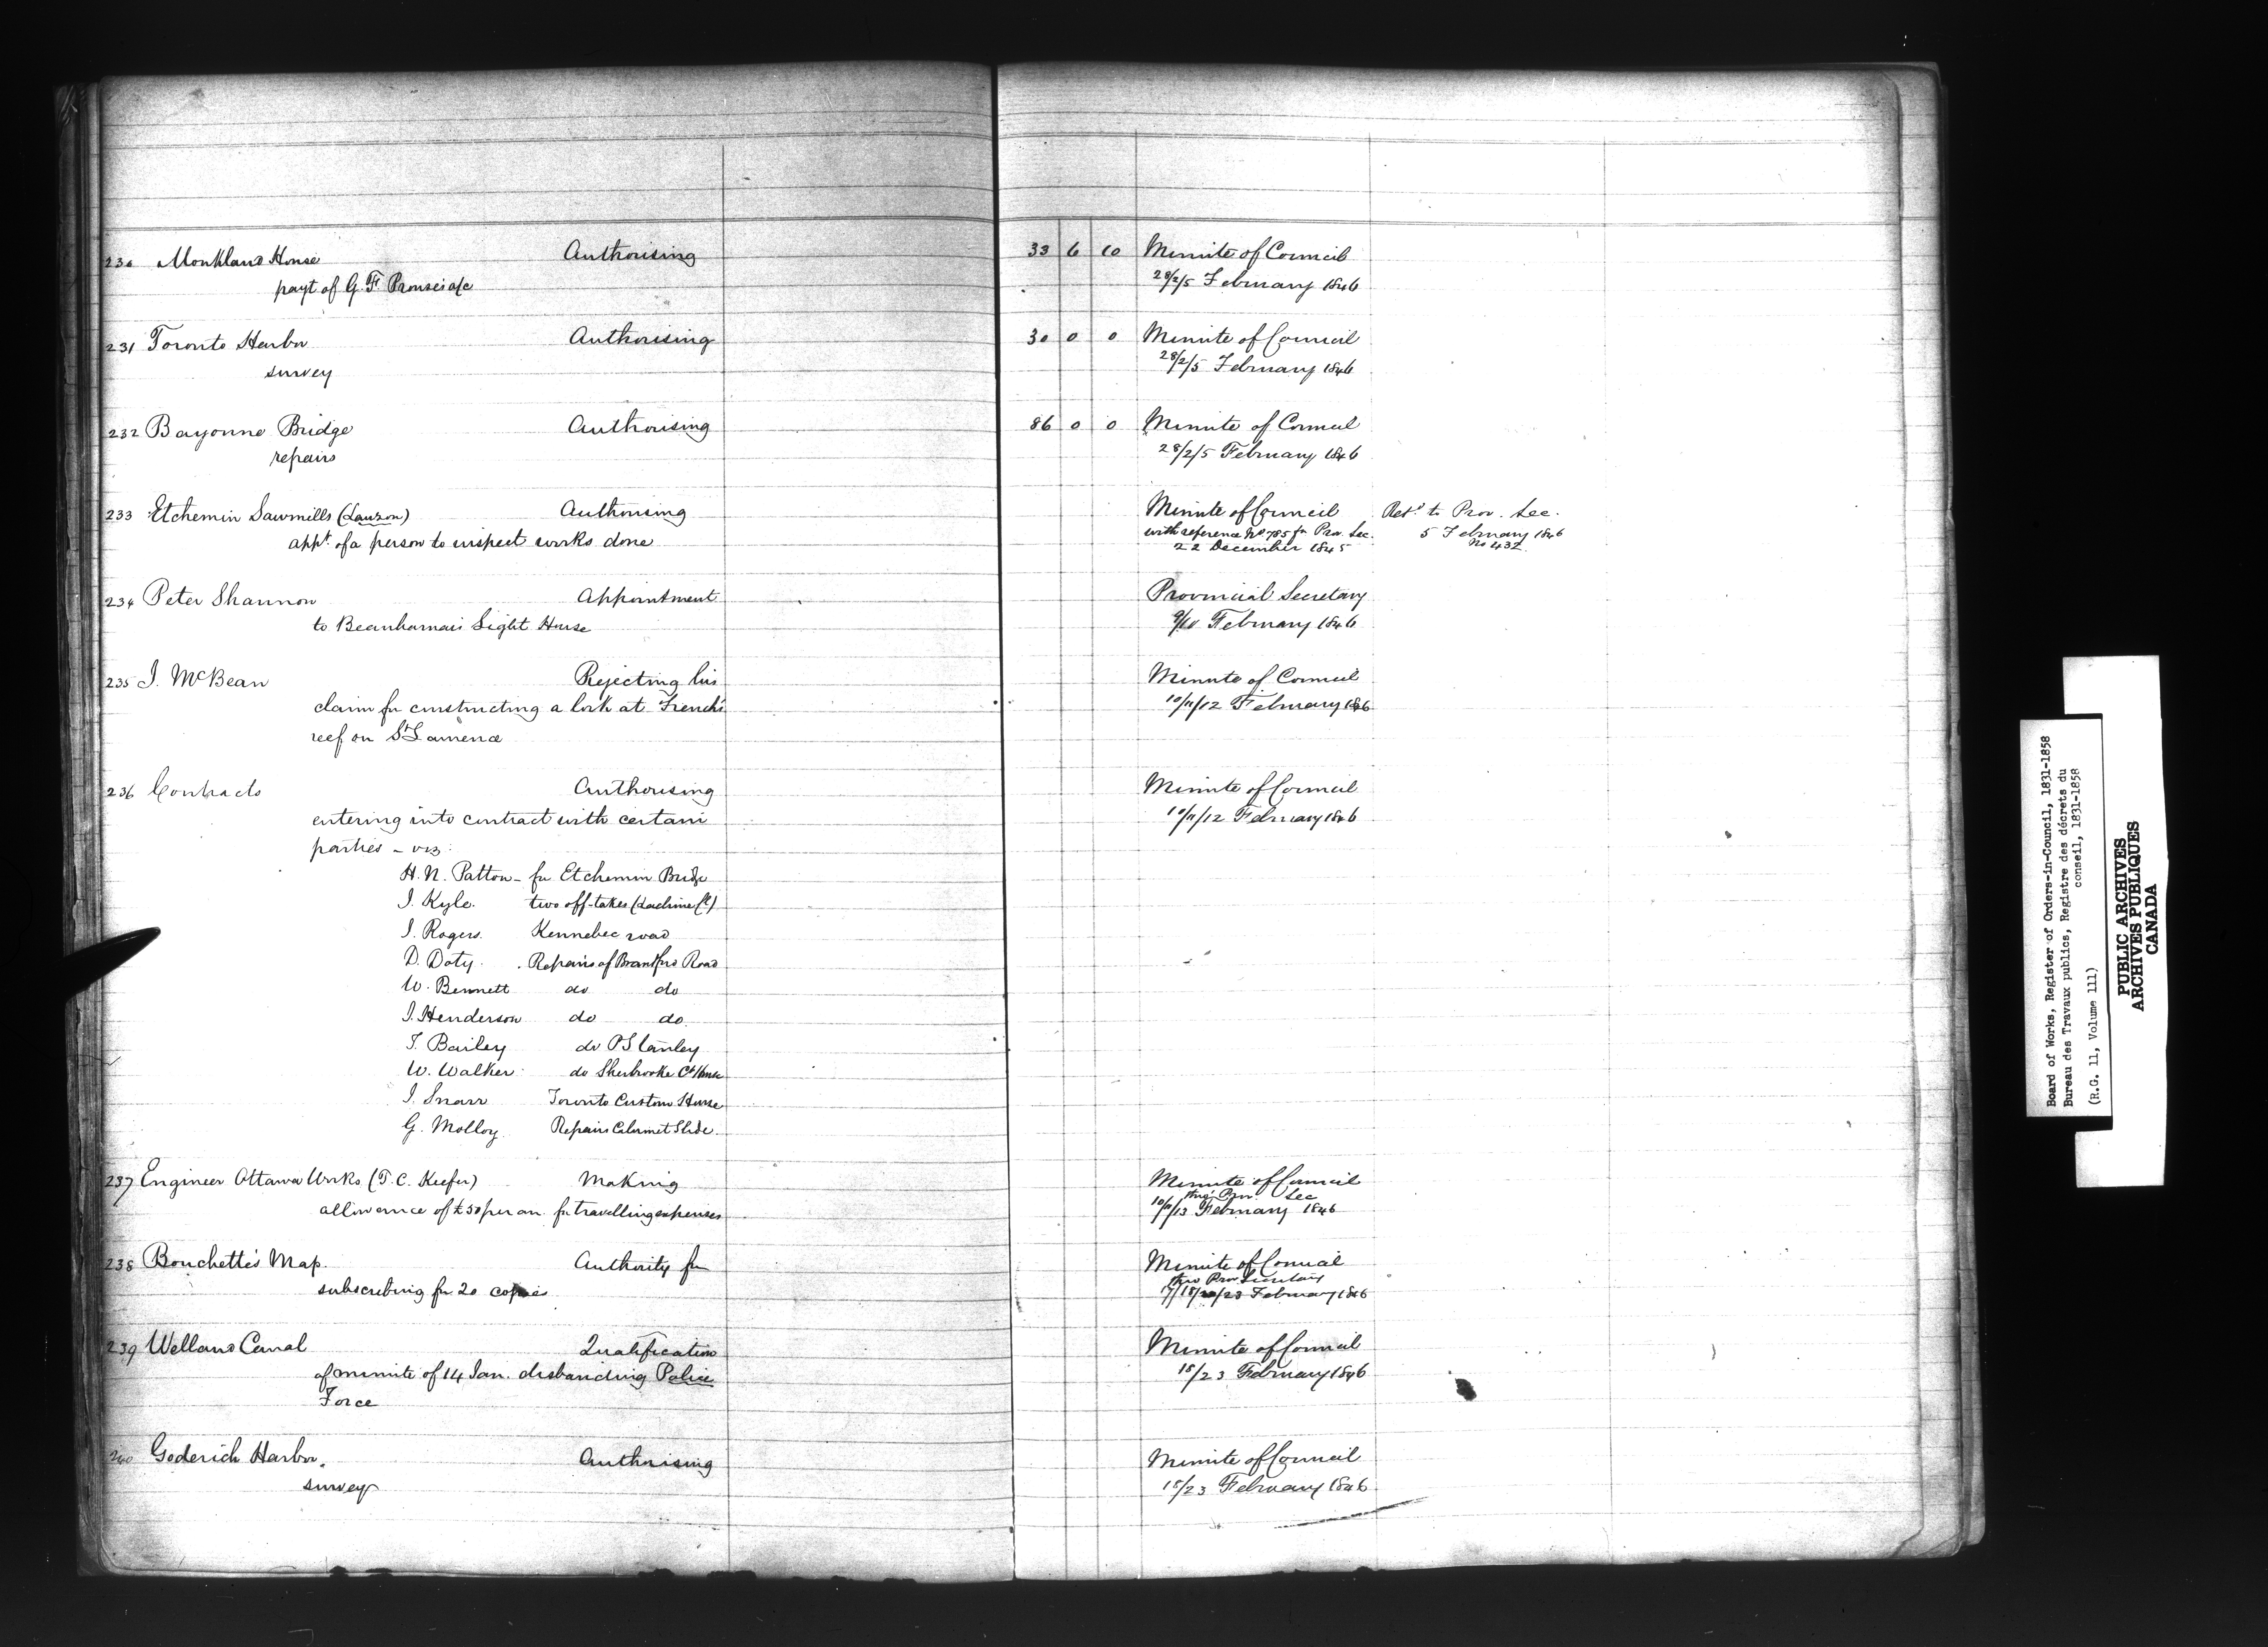 230 Monkland House Authorising 33 6 10 Minute of Council
payt of G. F. Prouse's a/c 28/2/5 February 1846
231 Toronto Harbor Authorising 30 0 0 Minute of Council
survey 28/2/5 February 1846
232 Bayonne Bridge Authorising 86 0 0 Minute of Council
repairs 28/2/5 February 1846
233 Etchemin Sawmills (Lauzon) Authorising Minute of Council Retd to Prov. Sec.
appt of a person to inspect works done with reference No 785 fm Prov. Sec. 5 February 1846
22 December 1845 No 432
234 Peter Shannon Appointment Provincial Secretary
to Beauharnais Light House 9/10 February 1846
235 J. McBean Rejecting his Minute of Council
claim for constructing a lock at French's 10/11/12 February 1846
reef on St Lawrence
236 Contracts Authorising Minute of Council
entering into contract with certain 10/11/12 February 1846
parties - viz:
H. N. Patton - for Etchemin Bridge
J. Kyle. two off-takes (Lachine Cl)
J. Rogers. Kennebec road
D. Doty. Repairs of Brantford Road
W. Bennett do do
J. Henderson do do
T. Bailey do P Stanley
W. Walker do Sherbrooke Ct House
J. Snarr Toronto Custom House
G. Molloy Repairs Calumet Slide.
237 Engineer Ottawa Works (T. C. Keefer) Making Minute of Council
thro' Prov. Sec
allowance of £50 per an. for travelling expenses 10/11/13 February 1846
238 Bouchette's Map. Authority for Minute of Council
thro Prov Secretary
subscribing for 20 copies 17/18/20/23 February 1846
239 Welland Canal Qualification Minute of Council
of minute of 14 Jan. disbanding Police 18/23 February 1846
Force
240 Goderich Harbor. Authorising Minute of Council
survey 18/23 February 1846
Board of Works, Register of Orders-in-Council, 1831-1858
Bureau des Travaux publics, Registre des décrets du
conseil, 1831-1858
(R.G. 11, Volume 111)
PUBLIC ARCHIVES
ARCHIVES PUBLIQUES
CANADA